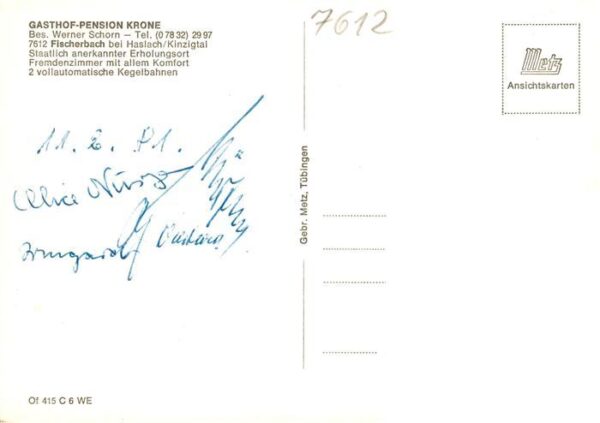 GASTHOF-PENSION KRONE
Bes. Werner Schorn — Tel. (0 78 32) 29 97
7612 Fischerbach bei Haslach/Kinzigtal
Staatlich anerkannter Erholungsort
Fremdenzimmer mit allem Komfort
2 vollautomatische Kegelbahnen
7612
Metz
Ansichtskarten
Gebr. Metz, Tübingen
Alice
Irmgard
Of 415 C 6 WE